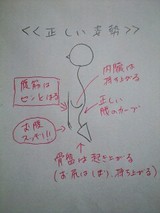 <<正しい姿勢>>
腹筋は
ピンとはる
内臓は
持ち上がる
正しい
腰のカーブ
お腹
スッキリ!!
骨盤は起き上がる
(お尻は(ぷり)持ち上がる)